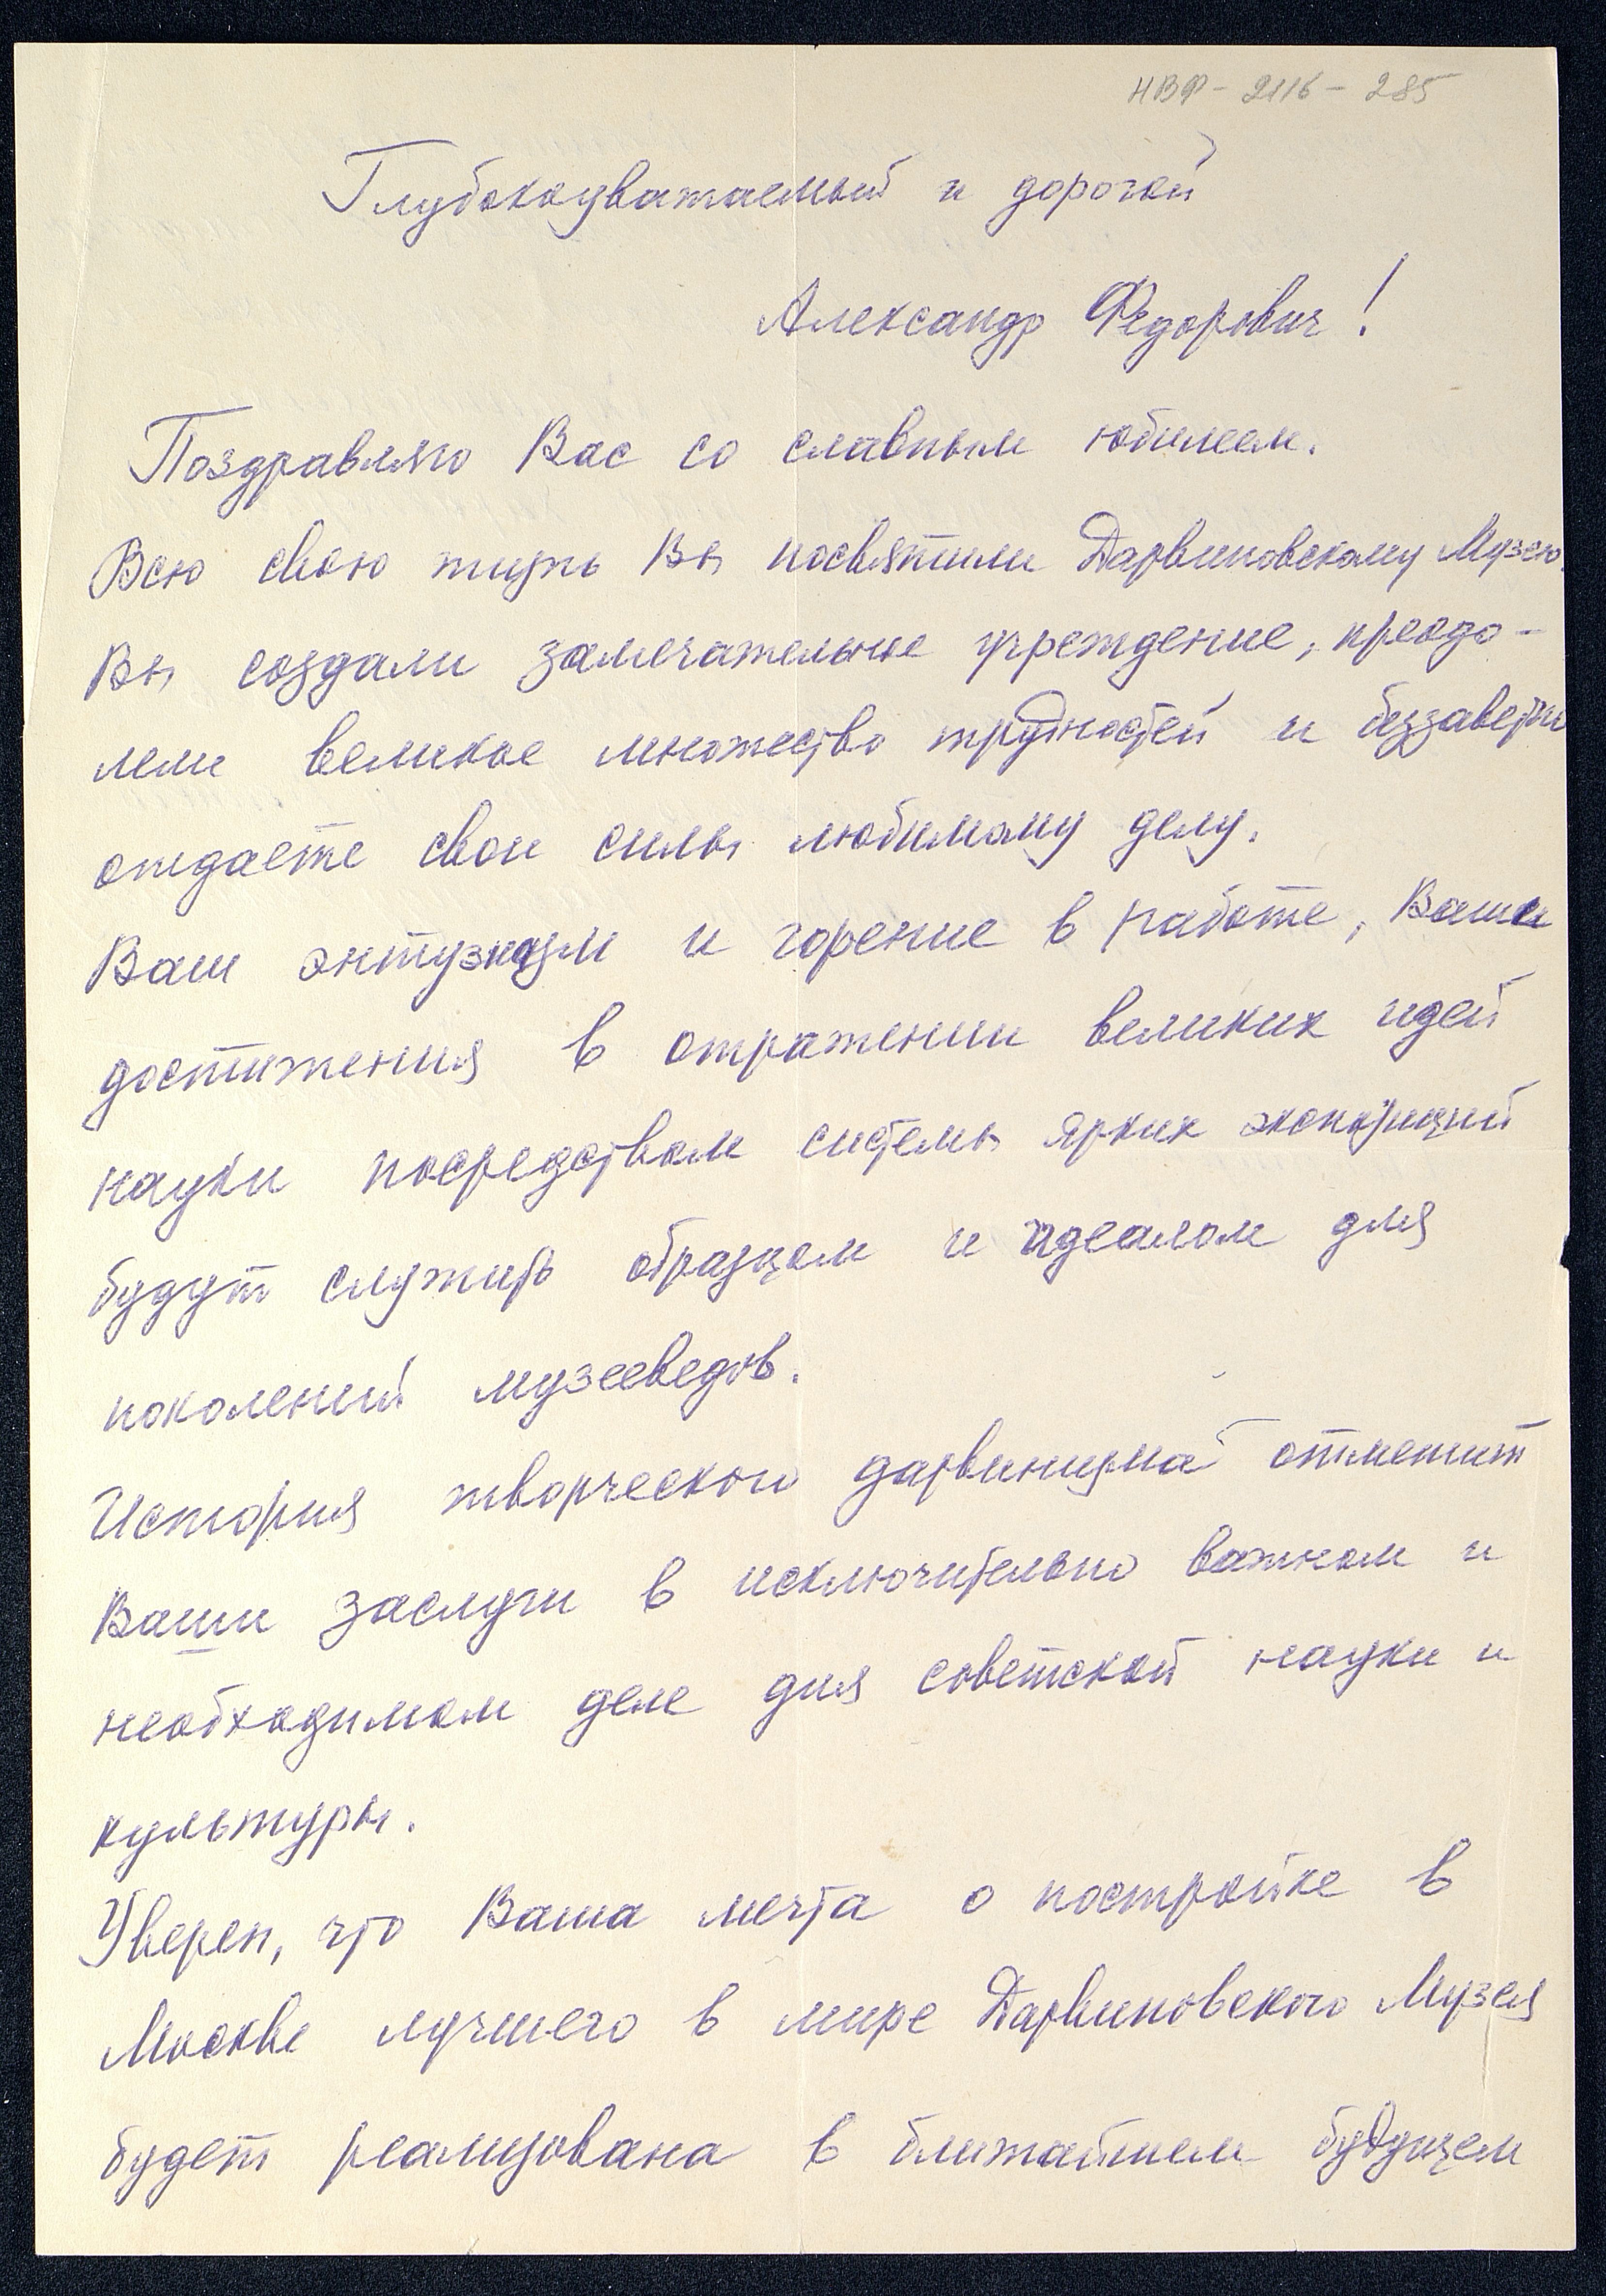 НВФ - 2116 - 285
Глубокоуважаемый и дорогой
Александр Федорович!
Поздравляю Вас со славным юбилеем.
Всю свою жизнь Вы посвятили Дарвиновскому Музею.
Вы создали замечательное учреждение, преодо-
лели великое множество трудностей и беззаветно
отдаете свои силы любимому делу.
Ваш энтузиазм и горение в работе, Ваши
достижения в отражении великих идей
науки посредством системы ярких экспозиций
будут служить образцом и идеалом для
поколений музееведов.
История творческого дарвинизма отметит
Ваши заслуги в исключительно важном и
необходимом деле для советской науки и
культуры.
Уверен, что Ваша мечта о постройке в
Москве лучшего в мире Дарвиновского Музея
будет реализована в ближайшем будущем